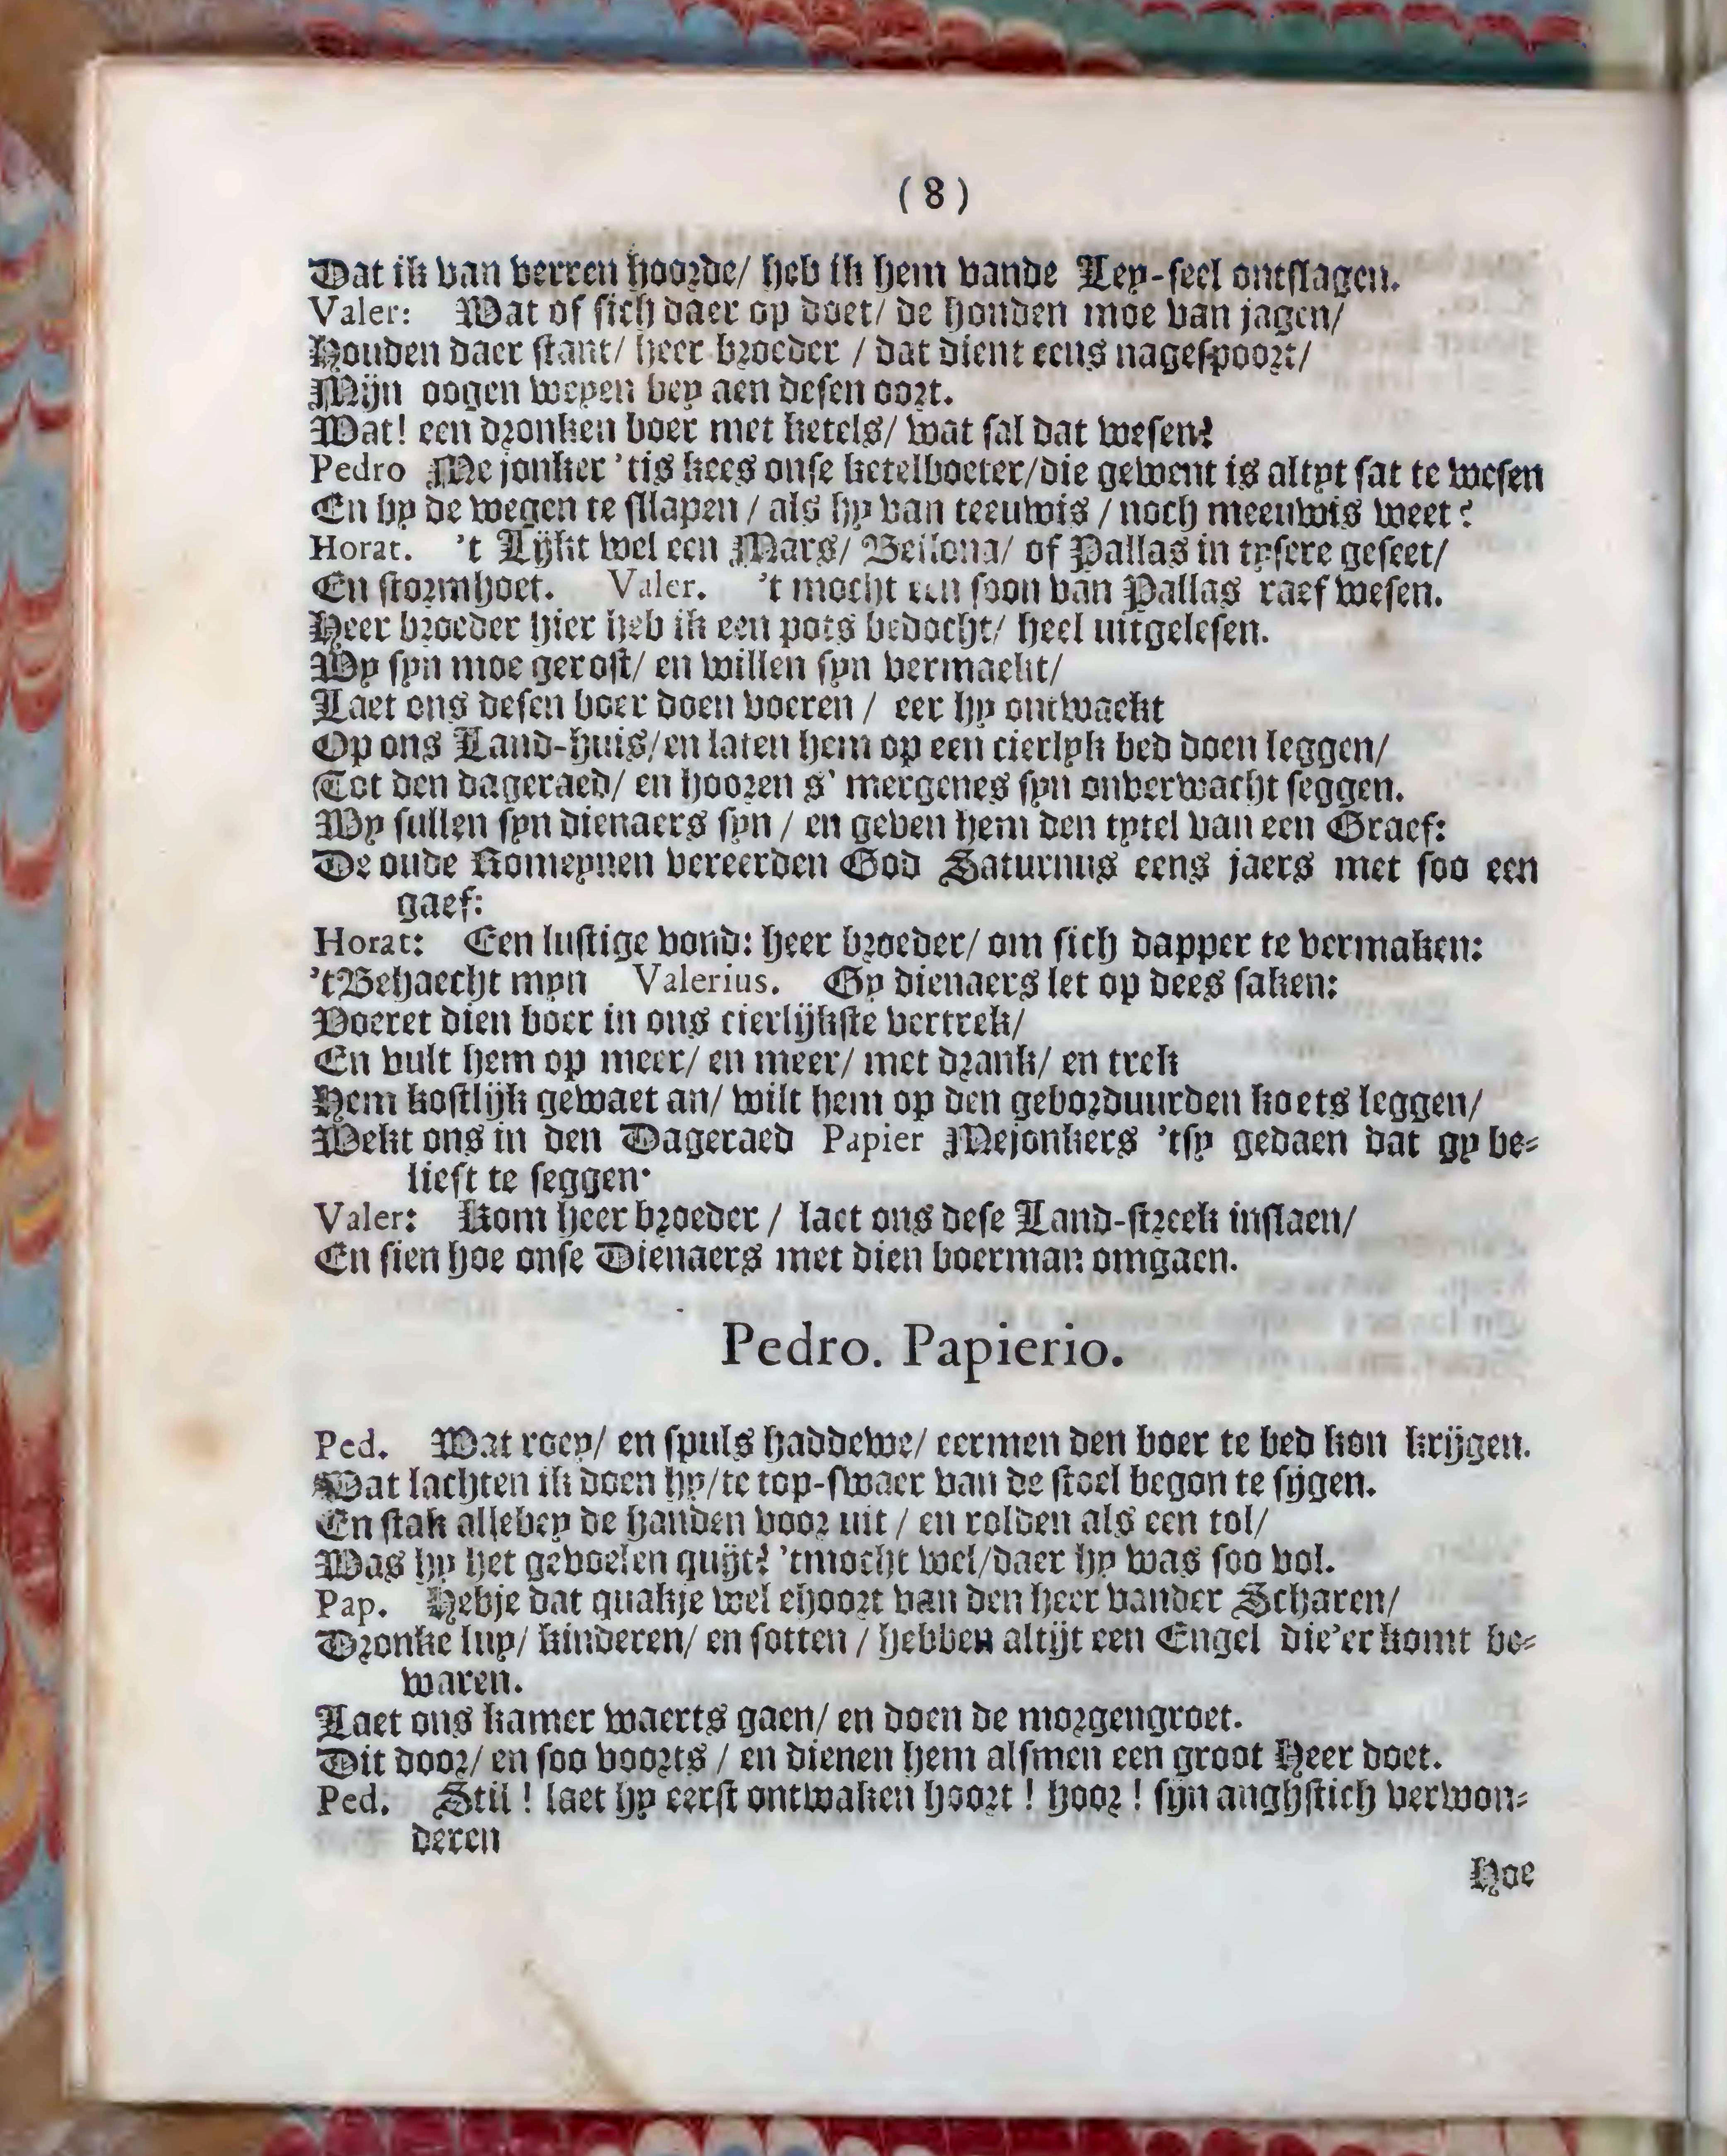 (8)
Dat ik van verren hoorde/ heb ik hem vande Ley-seel ontslagen.
Valer: Wat of sich daer op doet/ de honden moe van jagen/
Houden daer stant/ heer broeder / dat dient eens nagespoort/
Mijn oogen weyen vey aen desen oort.
Wat! een dronken boer met ketels/ wat sal dat wesen?
Pedro Me jonker 'tis kees onse ketelboeter/die gewent is altyt sat te wesen
En by de wegen te sllapen / als hy van teeuwis / noch meeuwis weet?
Horat. 't Lijkt wel een Mars/ Bellona/ of Pallas in tysere geseet/
En stormhoet. Valer. 't mocht een soon van Pallas raef wesen.
Heer broeder hier heb ik een pots bedocht/ heel uitgelesen.
Wy syn moe gerost/ en willen syn vermaekt/
Laet ons desen boer doen voeren / eer hy ontwaekt
Op ons Land-huis/en laten hem op een cierlyk bed doen leggen/
Tot den dageraed/ en hooren s' mergenes syn onverwacht seggen.
Wy sullen syn dienaers syn / en geven hem den tytel van een Graef:
De oude Romeynen vereerden God Saturnus eens jaers met soo een
gaef:
Horat: Een lustige vond: heer broeder/ om sich dapper te vermaken:
't Behaecht myn Valerius. Gy dienaers let op dees saken:
Voeret dien boer in ons cierlijkste vertrek/
En vult hem op meer/ en meer/ met drank/ en trek
Hem kostlijk gewaet an/ wilt hem op den geborduurden koets leggen/
Wekt ons in den Dageraed Papier Mejonkers 'tsy gedaen dat gy be-
lieft te seggen.
Valer: Kom heer broeder / laet ons dese Land-streek inslaen/
En sien hoe onse Dienaers met dien boerman omgaen.
Pedro. Papierio.
Ped. Wat roey/ en spuls haddewe/ eermen den boer te bed kon krijgen.
Wat lachten ik doen hy/te top-swaer van de stoel begon te sijgen.
En stak allebey de handen voor uit / en rolden als een tol/
Was hy het gevoelen quijt? 'tmocht wel/daer hy was soo vol.
Pap. Hebje dat quakje wel ehoort van den heer vander Scharen/
Dronke luy/ kinderen/ en sotten / hebben altijt een Engel die'er komt be-
waren.
Laet ons kamer waerts gaen/ en doen de morgengroet.
Dit door/ en soo voorts / en dienen hem alsmen een groot Heer doet.
Ped. Stil ! laet hy eerst ontwaken hoort ! hoor ! sijn anghstich verwon-
deren
Hoe